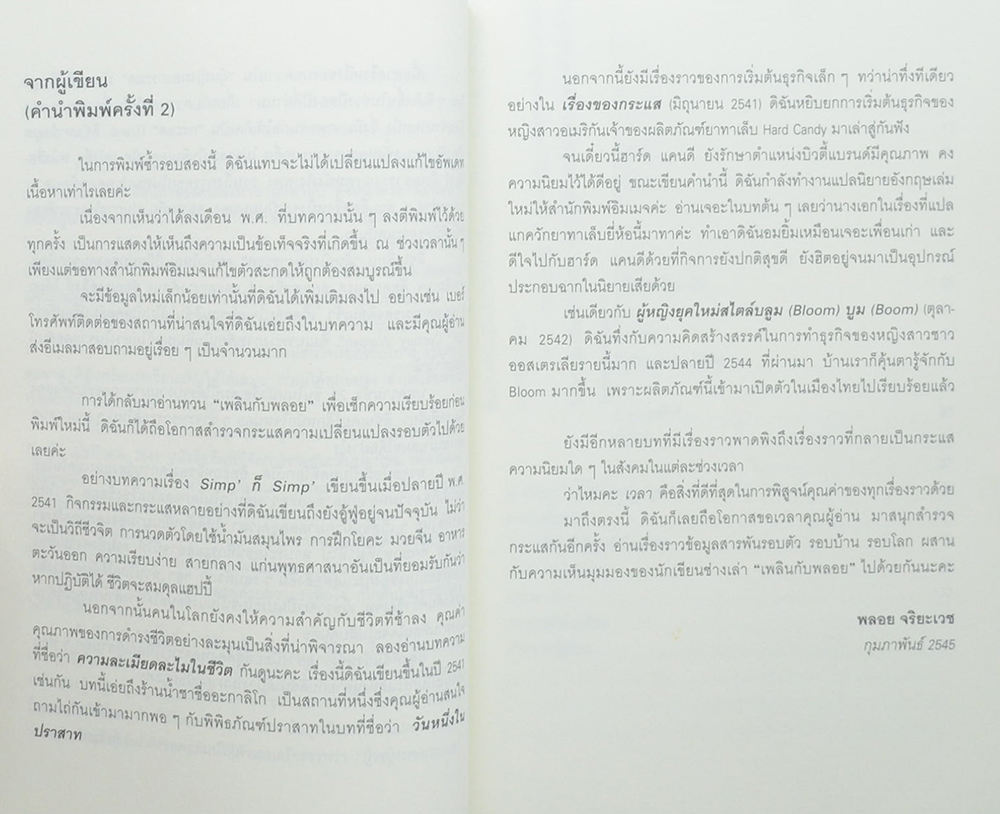 จากผู้เขียน
(คำนำพิมพ์ครั้งที่ 2)
ในการพิมพ์ซ้ำรอบสองนี้ ดิฉันแทบจะไม่ได้เปลี่ยนแปลงแก้ไขอัพเดท
เนื้อหาเท่าไรเลยค่ะ
เนื่องจากเห็นว่าได้ลงเดือน พ.ศ. ที่บทความนั้น ๆ ลงตีพิมพ์ไว้ด้วย
ทุกครั้ง เป็นการแสดงให้เห็นถึงความเป็นข้อเท็จจริงที่เกิดขึ้น ณ ช่วงเวลานั้น ๆ
เพียงแต่ขอทางสำนักพิมพ์อิมเมจแก้ไขตัวสะกดให้ถูกต้องสมบูรณ์ขึ้น
จะมีข้อมูลใหม่เล็กน้อยเท่านั้นที่ดิฉันได้เพิ่มเติมลงไป อย่างเช่น เบอร์
โทรศัพท์ติดต่อของสถานที่น่าสนใจที่ดิฉันเอ่ยถึงในบทความ และมีคุณผู้อ่าน
ส่งอีเมลมาสอบถามอยู่เรื่อย ๆ เป็นจำนวนมาก
การได้กลับมาอ่านทวน “เพลินกับพลอย” เพื่อเช็กความเรียบร้อยก่อน
พิมพ์ใหม่นี้ ดิฉันก็ได้ถือโอกาสสำรวจกระแสความเปลี่ยนแปลงรอบตัวไปด้วย
เลยค่ะ
อย่างบทความเรื่อง Simp' ก็ Simp' เขียนขึ้นเมื่อปลายปี พ.ศ.
2541 กิจกรรมและกระแสหลายอย่างที่ดิฉันเขียนถึงยังอู้ฟู่อยู่จนปัจจุบัน ไม่ว่า
จะเป็นวิถีชีวจิต การนวดตัวโดยใช้น้ำมันสมุนไพร การฝึกโยคะ มวยจีน อาหาร
ตะวันออก ความเรียบง่าย สายกลาง แก่นพุทธศาสนาอันเป็นที่ยอมรับกันว่า
หากปฏิบัติได้ ชีวิตจะสมดุลแฮปปี้
นอกจากนั้นคนในโลกยังคงให้ความสำคัญกับชีวิตที่ช้าลง คุณค่า
คุณภาพของการดำรงชีวิตอย่างละมุนเป็นสิ่งที่น่าพิจารณา ลองอ่านบทความ
ที่ชื่อว่า ความละเมียดละไมในชีวิต กันดูนะคะ เรื่องนี้ดิฉันเขียนขึ้นในปี 2541
เช่นกัน บทนี้เอ่ยถึงร้านน้ำชาชื่ออะกาลิโก เป็นสถานที่หนึ่งซึ่งคุณผู้อ่านสนใจ
ถามไถ่กันเข้ามามากพอ ๆ กับพิพิธภัณฑ์ปราสาทในบทที่ชื่อว่า วันหนึ่งใน
ปราสาท
นอกจากนี้ยังมีเรื่องราวของการเริ่มต้นธุรกิจเล็ก ๆ ทว่าน่าทึ่งทีเดียว
อย่างใน เรื่องของกระแส (มิถุนายน 2541) ดิฉันหยิบยกการเริ่มต้นธุรกิจของ
หญิงสาวอเมริกันเจ้าของผลิตภัณฑ์ยาทาเล็บ Hard Candy มาเล่าสู่กันฟัง
จนเดี๋ยวนี้ฮาร์ด แคนดี ยังรักษาตำแหน่งบิวตี้แบรนด์มีคุณภาพ คง
ความนิยมไว้ได้ดีอยู่ ขณะเขียนคำนำนี้ ดิฉันกำลังทำงานแปลนิยายอังกฤษเล่ม
ใหม่ให้สำนักพิมพ์อิมเมจค่ะ อ่านเจอะในบทต้น ๆ เลยว่านางเอกในเรื่องที่แปล
แกควักยาทาเล็บยี่ห้อนี้มาทาค่ะ ทำเอาดิฉันอมยิ้มเหมือนเจอะเพื่อนเก่า และ
ดีใจไปกับฮาร์ด แคนดีด้วยที่กิจการยังปกติสุขดี ยังฮิตอยู่จนมาเป็นอุปกรณ์
ประกอบฉากในนิยายเสียด้วย
เช่นเดียวกับ ผู้หญิงยุคใหม่สไตล์บลูม (Bloom) บูม (Boom) (ตุลา-
คม 2542) ดิฉันทึ่งกับความคิดสร้างสรรค์ในการทำธุรกิจของหญิงสาวชาว
ออสเตรเลียรายนี้มาก และปลายปี 2544 ที่ผ่านมา บ้านเราก็คุ้นตารู้จักกับ
Bloom มากขึ้น เพราะผลิตภัณฑ์นี้เข้ามาเปิดตัวในเมืองไทยไปเรียบร้อยแล้ว
ยังมีอีกหลายบทที่มีเรื่องราวพาดพิงถึงเรื่องราวที่กลายเป็นกระแส
ความนิยมใด ๆ ในสังคมในแต่ละช่วงเวลา
ว่าไหมคะ เวลา คือสิ่งที่ดีที่สุดในการพิสูจน์คุณค่าของทุกเรื่องราวด้วย
มาถึงตรงนี้ ดิฉันก็เลยถือโอกาสขอเวลาคุณผู้อ่าน มาสนุกสำรวจ
กระแสกันอีกครั้ง อ่านเรื่องราวข้อมูลสารพันรอบตัว รอบบ้าน รอบโลก ผสาน
กับความเห็นมุมมองของนักเขียนช่างเล่า “เพลินกับพลอย” ไปด้วยกันนะคะ
พลอย จริยะเวช
กุมภาพันธ์ 2545